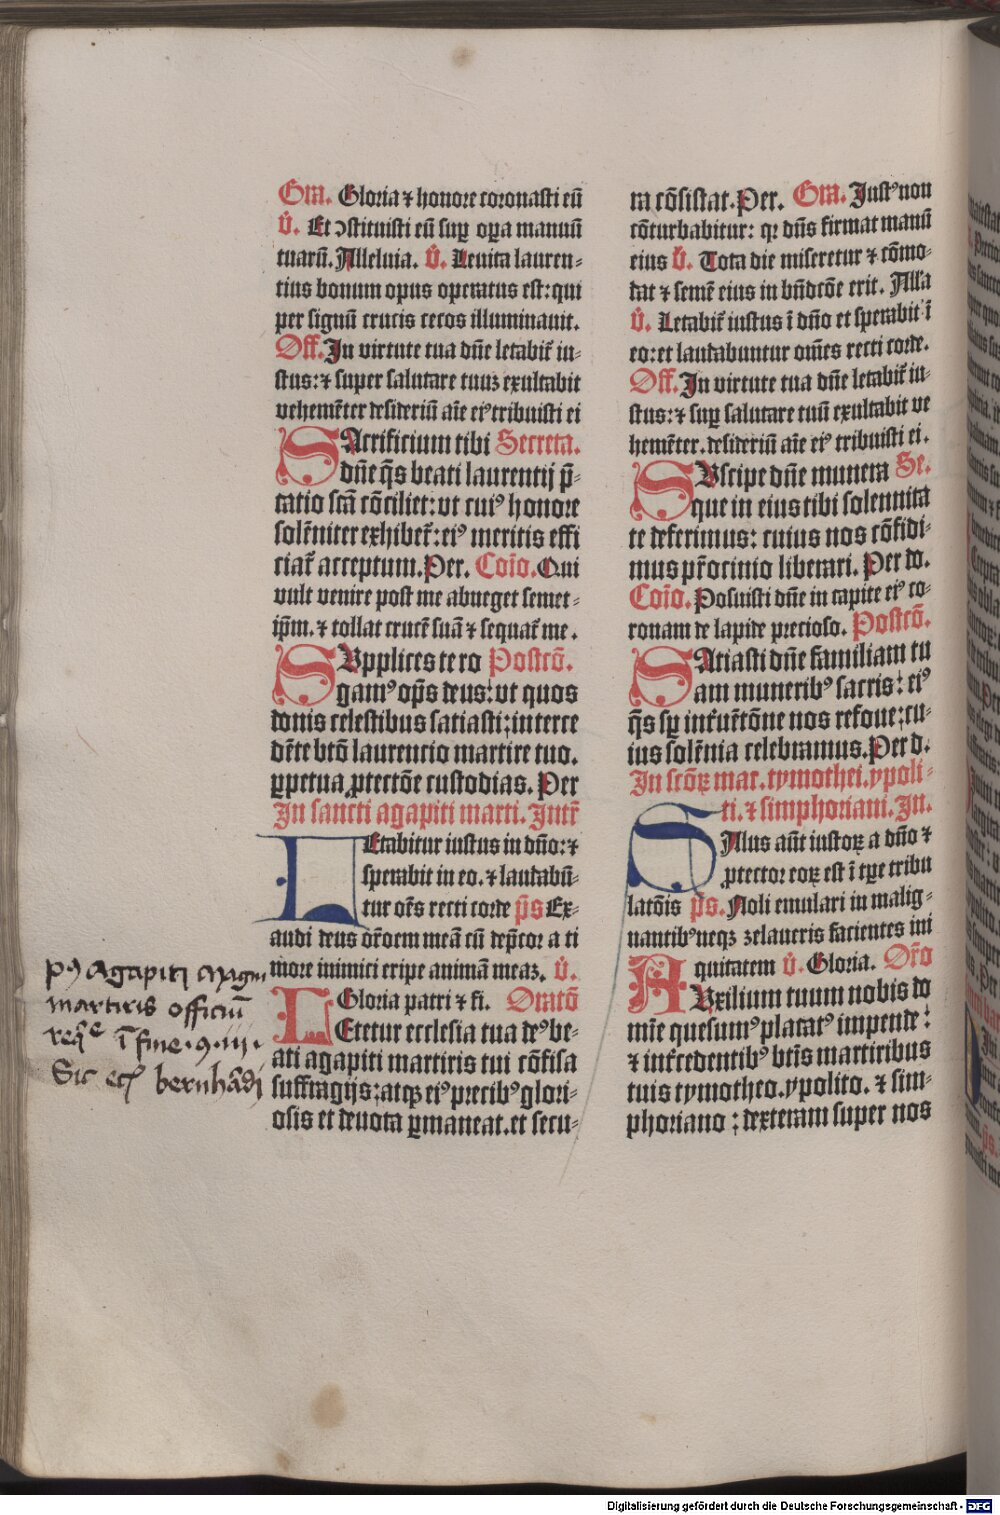 Gra. Gloria ⁊ honore coronasti eũ
V̄. Et ↄstituisti eũ suꝑ oꝑa manuũ
tuarũ. Alleluia. V̄. Leuita lauren-
tius bonum opus operatus est: qui
per signũ crucis cecos illuminauit.
Off. In virtute tua dñe letabiť iu-
stus: ⁊ super salutare tuuʒ exultabit
vehemẽter desideriũ aĩe eiꝰ tribuisti ei
SAcrificium tibi Secreta.
dñe q̃s beati laurentij p̃-
catio scã cõciliet: vt cuiꝰ honore
solẽniter exhibeť: eiꝰ meritis effi
ciať acceptum. Per. Coĩo. Qui
vult venire post me abneget semet-
ip̃m. ⁊ tollat crucẽ suã ⁊ sequať me.
SVpplices te ro Postcõ.
gamꝰ op̃s deus: vt quos
donis celestibus satiasti: interce
dẽte btõ laurencio martire tuo.
ꝑpetua ꝓtectiõe custodias. Per
In sancti agapiti marti. Intř
LEtabitur iustus in dño: ⁊
sperabit in eo. ⁊ laudabũ-
tur oẽs recti corde p̃s Ex-
audi deus oр̃oem meã cũ dep̃cor a ti
more inimici eripe animã meaʒ. V̄.
Gloria patri ⁊ fi. Oratõ
LEtetur ecclesia tua deꝰ be-
ati agapiti martiris tui cõfisa
suffragijs: atqʒ eiꝰ precibꝰ glori-
osis et deuota ꝑmaneat. et secu-
ra cõsistat. Per. Gra. Iustꝰ non
cõturbabitur: qꝛ dñs firmat manũ
eius V̄. Tota die miseretur ⁊ cõmo-
dat ⁊ semẽ eius in bñdcõe erit. Alľa
V̄. Letabiť iustus ĩ dño et sperabit ĩ
eo: et laudabuntur om̃es recti corde.
Off. In virtute tua dñe letabiť iu-
stus: ⁊ suꝑ salutare tuũ exultabit ve
hemẽter. desideriũ aĩe eiꝰ tribuisti ei.
SVscipe dñe munera Se.
que in eius tibi solennita
te deferimus: cuius nos cõfidi-
mus přocinio liberari. Per do.
Coĩo. Posuisti dñe in capite eiꝰ co-
ronam de lapide precioso. Postcõ.
SAtiasti dñe familiam tu
am muneribꝰ sacris: eiꝰ
q̃s sꝑ inťuẽtõne nos refoue: cu-
ius solẽnia celebramus. Per d.
In scõꝝ mar. tymothei. ypoli-
ti. ⁊ simphoriani. In.
SAlus aũt iustoꝝ a dño ⁊
ꝓtector eoꝝ est ĩ tꝑe tribu
latõis p̃s. Noli emulari in malig-
nantibꝰ neqʒ zelaueris facientes ini
quitatem V̄. Gloria. Or̃o
AVxilium tuum nobis do
mĩe quesumꝰ placatꝰ impende:
⁊ inťcedentibꝰ btĩs martiribus
tuis tymotheo. ypolito. ⁊ sim-
phoriano: dexteram super nos
agapiti magni
martiris officiũ
ĩ fine
Sic bernhãdi
Digitalisierung gefördert durch die Deutsche Forschungsgemeinschaft - DFG